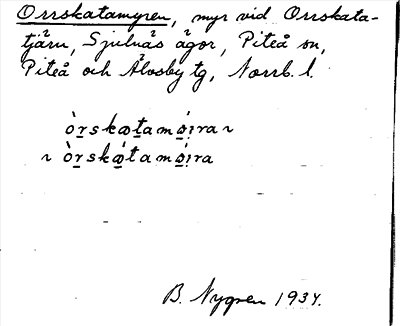 Orrskatamyren, myr vid Orrskata-
tjärn, Sjulnäs ägor, Piteå sn,
Piteå och Älvsby tg, Norrb. l.
òrskøtamøira ~
~ òrskǿtamøira
B. Nygren 1934.